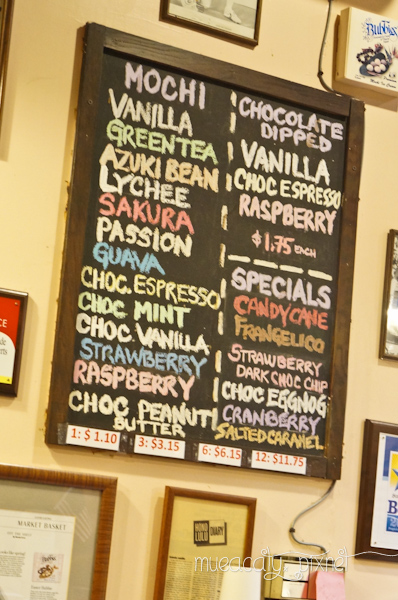 MOCHI
VANILLA
GREEN TEA
AZUKI BEAN
LYCHEE
SAKURA
PASSION
GUAVA
CHOC. ESPRESSO
CHOC MINT
CHOC. VANILLA
STRAWBERRY
RASPBERRY
CHOC PEANUT
BUTTER
1: $ 1.10
3: $3.15
6: $6.15
12: $11.75
CHOCOLATE
DIPPED
VANILLA
CHOC ESPRESSO
RASPBERRY
$1.75 EACH
SPECIALS
CANDY CANE
FRANGELICO
STRAWBERRY
DARK CHOC CHIP
CHOC EGGNOG
CRANBERRY
SALTED CARAMEL
Bubbies
MARKET BASKET
HONO
LULU
DIARY